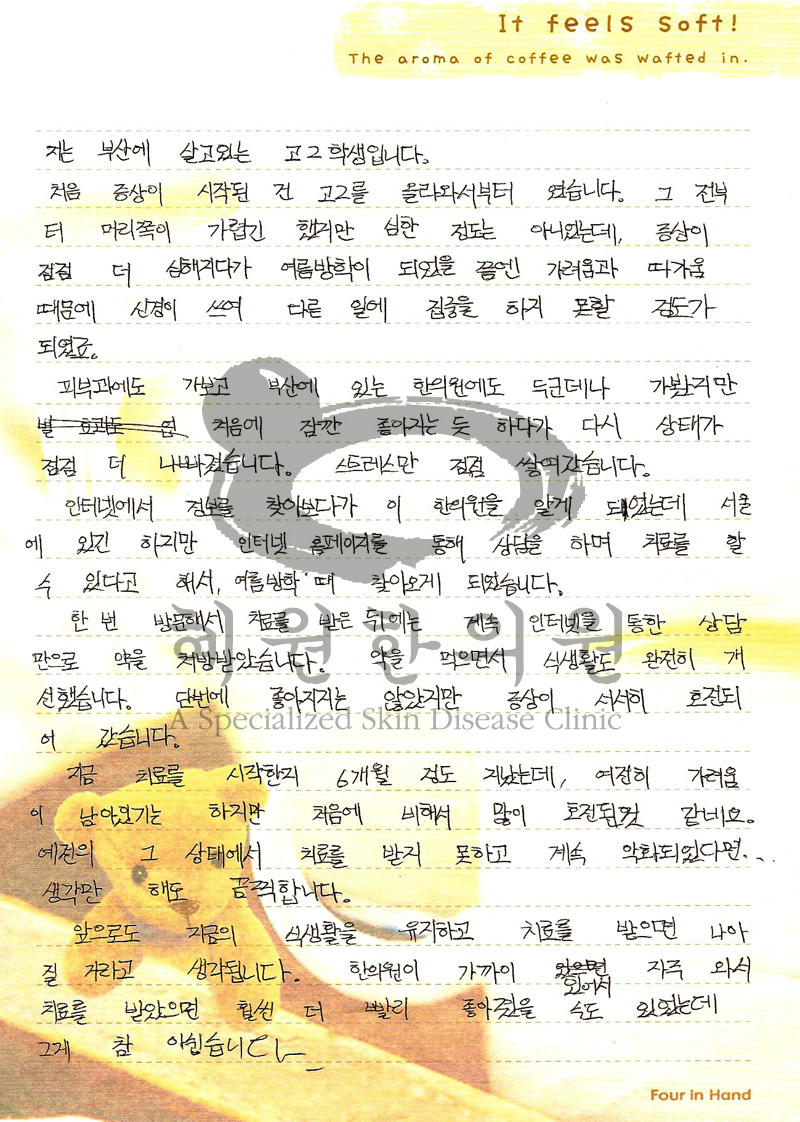 It feels soft!
The aroma of coffee was wafted in.
저는 부산에 살고있는 고2학생입니다.
처음 증상이 시작된 건 고2를 올라와서부터 였습니다. 그 전부
터 머리쪽이 가렵긴 했지만 심한 정도는 아니었는데, 증상이
점점 더 심해지다가 여름방학이 되었을 쯤엔 가려움과 따가움
때문에 신경이 쓰여 다른 일에 집중을 하지 못할 정도가
되었죠.
피부과에도 가보고 부산에 있는 한의원에도 두군데나 가봤지만
별 효과도 처음에 잠깐 좋아지는 듯 하다가 다시 상태가
점점 더 나빠졌습니다. 스트레스만 점점 쌓여갔습니다.
인터넷에서 정보를 찾아보다가 이 한의원을 알게 되었는데 서울
에 있긴 하지만 인터넷 홈페이지를 통해 상담을 하며 치료를 할
수 있다고 해서, 여름방학 때 찾아오게 되었습니다.
한 번 방문해서 치료를 받은 뒤에는 계속 인터넷을 통한 상담
만으로 약을 처방받았습니다. 약을 먹으면서 식생활도 완전히 개
선했습니다. 단번에 좋아지지는 않았지만 증상이 서서히 호전되
어 갔습니다.
지금 치료를 시작한지 6개월 정도 지났는데, 여전히 가려움
이 남아있기는 하지만 처음에 비해서 많이 호전된것 같네요.
예전의 그 상태에서 치료를 받지 못하고 계속 악화되었다면...
생각만 해도 끔찍합니다.
앞으로도 지금의 식생활을 유지하고 치료를 받으면 나아
질 거라고 생각됩니다. 한의원이 가까이 있으면 있어서 자주 와서
치료를 받았으면 훨씬 더 빨리 좋아졌을 수도 있었는데
그게 참 아쉽습니다_
혜원한의원
A Specialized Skin Disease Clinic
Four in Hand